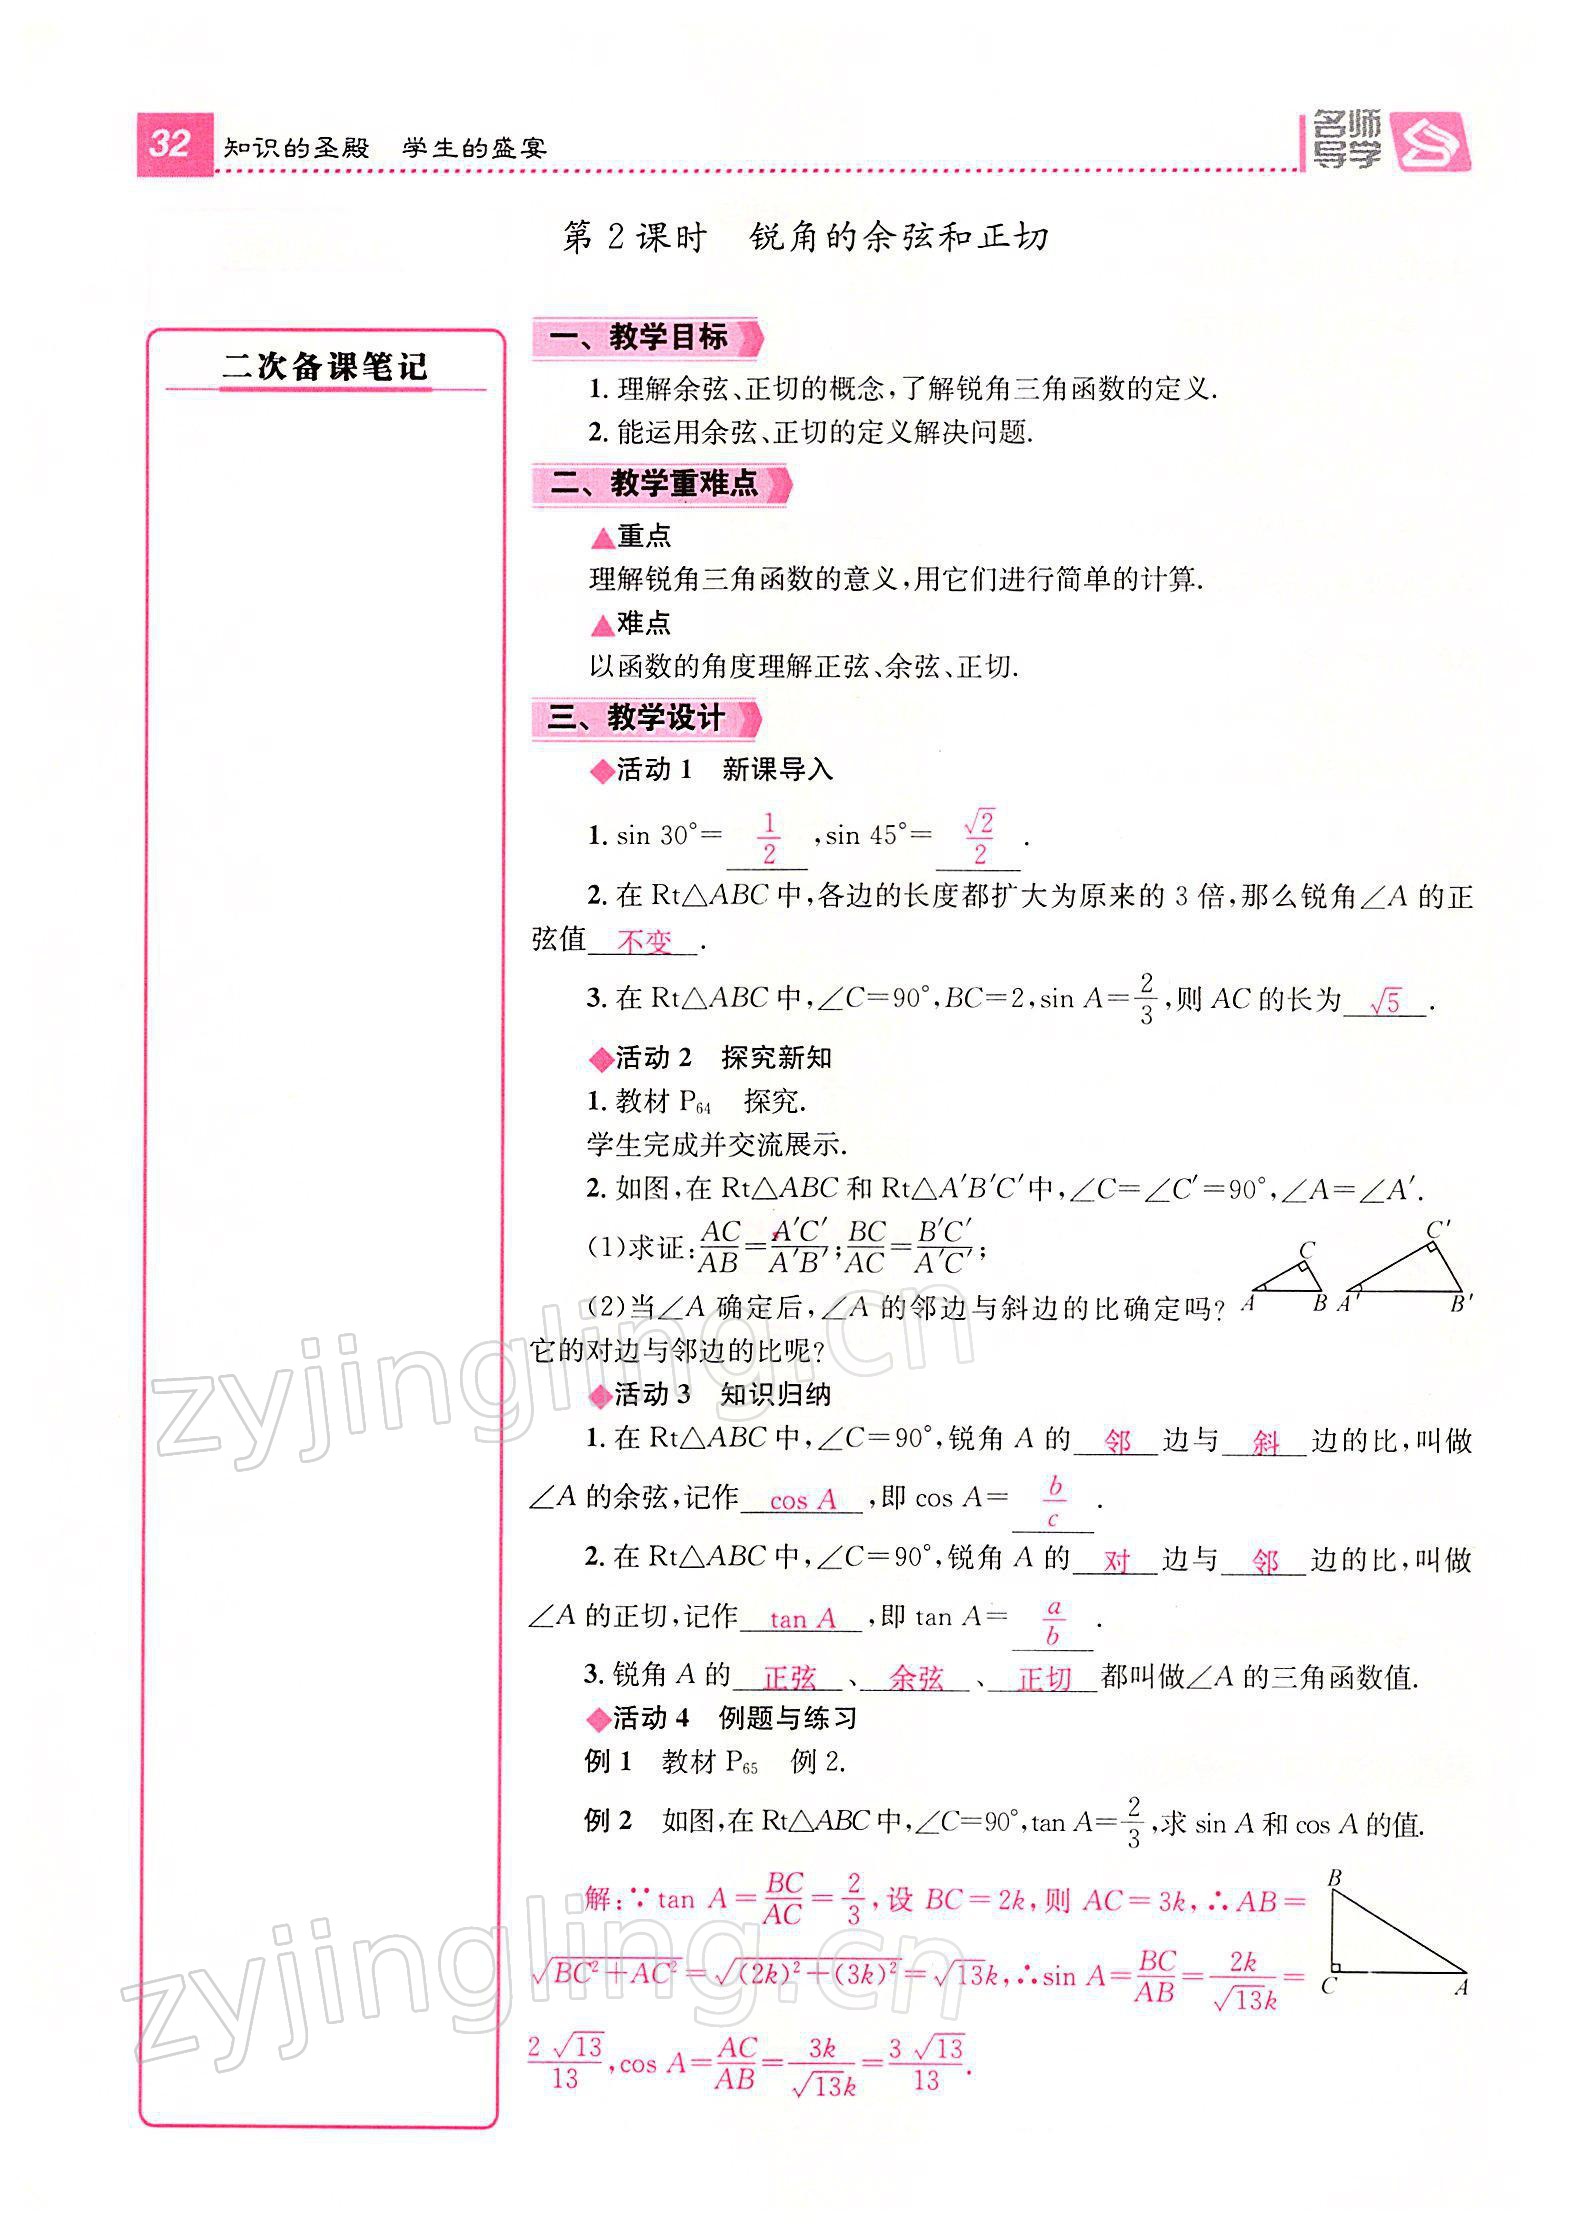 32 知识的圣殿 学生的盛宴
名师
导学
第2课时 锐角的余弦和正切
二次备课笔记
一、教学目标
1. 理解余弦、正切的概念,了解锐角三角函数的定义.
2. 能运用余弦、正切的定义解决问题.
二、教学重难点
▲重点
理解锐角三角函数的意义,用它们进行简单的计算.
▲难点
以函数的角度理解正弦、余弦、正切.
三、教学设计
◆活动1 新课导入
1. sin 30°= 1/2 ,sin 45°= √2/2 .
2. 在 Rt△ABC 中,各边的长度都扩大为原来的 3 倍,那么锐角∠A 的正
弦值 不变 .
3. 在 Rt△ABC 中,∠C=90°,BC=2,sin A=2/3,则 AC 的长为 √5 .
◆活动2 探究新知
1. 教材 P64 探究.
学生完成并交流展示.
2. 如图,在 Rt△ABC 和 Rt△A′B′C′中,∠C=∠C′=90°,∠A=∠A′.
(1)求证:AC/AB=A′C′/A′B′;BC/AC=B′C′/A′C′;
(2)当∠A 确定后,∠A 的邻边与斜边的比确定吗?
它的对边与邻边的比呢?
A B C A′ B′ C′
◆活动3 知识归纳
1. 在 Rt△ABC 中,∠C=90°,锐角 A 的 邻 边与 斜 边的比,叫做
∠A 的余弦,记作 cos A ,即 cos A= b/c .
2. 在 Rt△ABC 中,∠C=90°,锐角 A 的 对 边与 邻 边的比,叫做
∠A 的正切,记作 tan A ,即 tan A= a/b .
3. 锐角 A 的 正弦 、 余弦 、 正切 都叫做∠A 的三角函数值.
◆活动4 例题与练习
例1 教材 P65 例 2.
例2 如图,在 Rt△ABC 中,∠C=90°,tan A=2/3,求 sin A 和 cos A 的值.
解:∵tan A=BC/AC=2/3,设 BC=2k,则 AC=3k,∴AB=
√(BC²+AC²)=√((2k)²+(3k)²)=√13k,∴sin A=BC/AB=2k/√13k=
2√13/13,cos A=AC/AB=3k/√13k=3√13/13.
B
C A
zyjingling.cn
zyjingling.cn